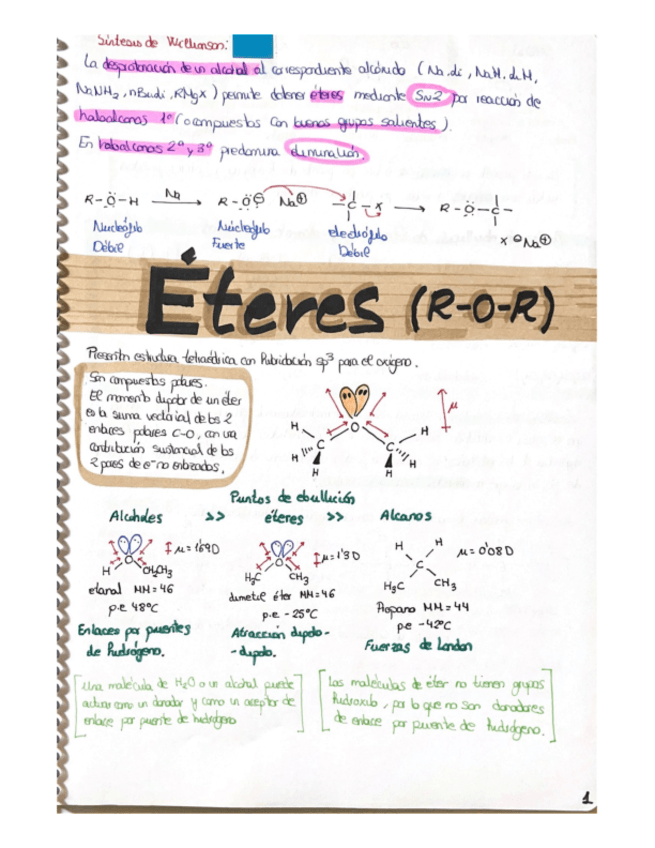 Síntesis de Williamson:
La desprotonación de un alcohol al correspondiente alcóxido (Na, Li, NaH, LiH,
NaNH2, nBuLi, RMgX) permite obtener éteres mediante SN2 por reacción de
haloalcanos 1º (o compuestos con buenos grupos salientes).
En haloalcanos 2º y 3º predomina eliminación.
R-Ö-H Na R-Ö⊖ Na⊕ -C-X R-Ö-C-
Nucleófilo Nucleófilo electrófilo X⊖Na⊕
Débil Fuerte Débil
Éteres (R-O-R)
Presentan estructura tetraédrica con hibridación sp3 para el oxígeno.
Son compuestos polares.
El momento dipolar de un éter
es la suma vectorial de los 2
enlaces polares C-O, con una
contribución sustancial de los
2 pares de e- no enlazados.
μ
O
H C C H
H H
H H
Puntos de ebullición
Alcoholes >> éteres >> Alcanos
μ=1'69D μ=1'3D μ=0'08D
H O CH2CH3 H3C O CH3 H H C H3C CH3
etanol MM=46 dimetil éter MM=46 Propano MM=44
p.e 48ºC p.e -25ºC pe -42ºC
Enlaces por puentes Atracción dipolo- Fuerzas de London
de hidrógeno. -dipolo.
Una molécula de H2O o un alcohol puede
actuar como un donador y como un aceptor de
enlace por puente de hidrógeno
Las moléculas de éter no tienen grupos
hidroxilo, por lo que no son donadores
de enlace por puente de hidrógeno.
1